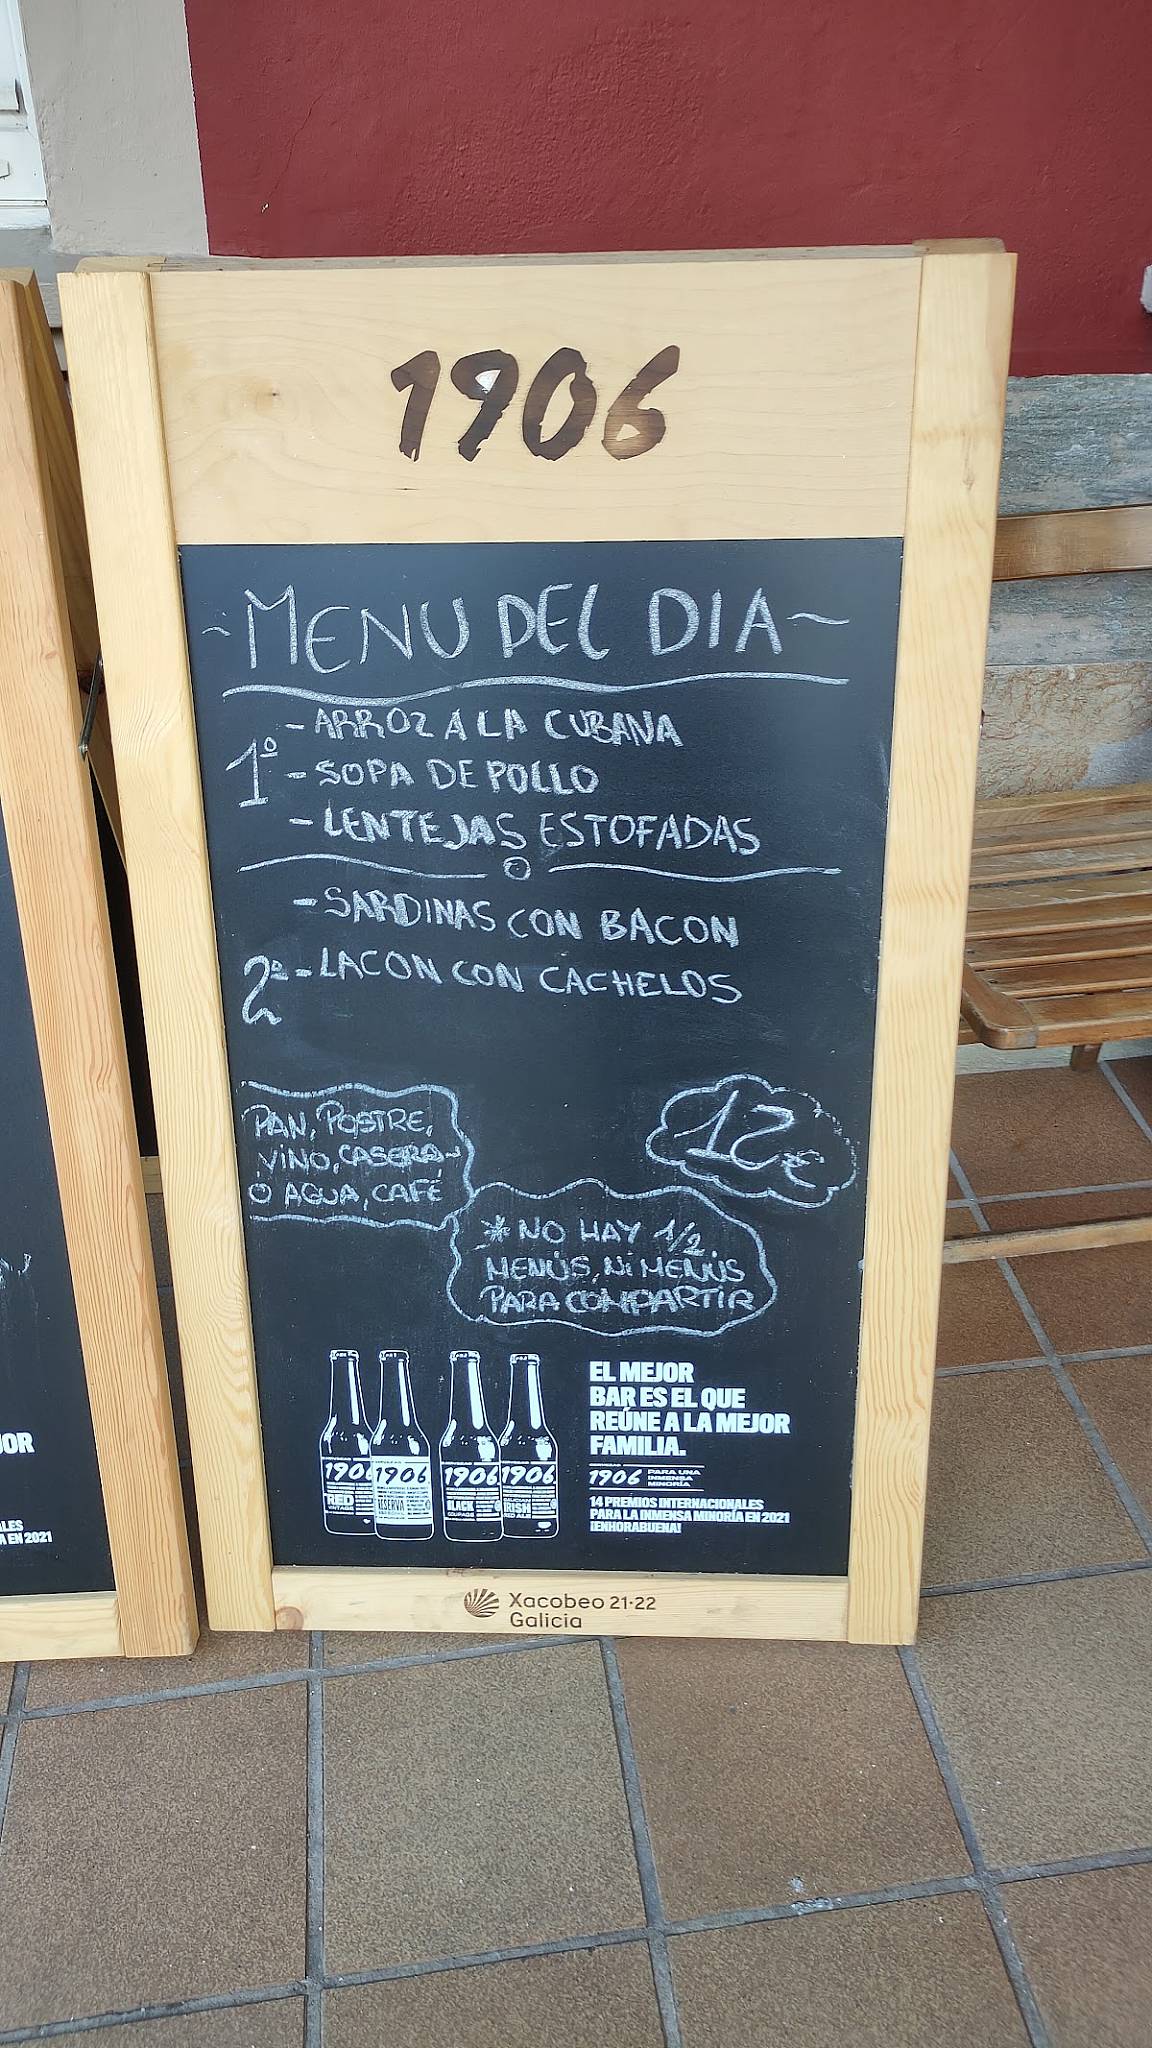 1906
~MENU DEL DIA~
1º
- ARROZ A LA CUBANA
- SOPA DE POLLO
- LENTEJAS ESTOFADAS
2º
- SARDINAS CON BACON
- LACON CON CACHELOS
PAN, POSTRE,
VINO, CASERA
O AGUA, CAFÉ
12€
* NO HAY 1/2
MENÚS, NI MENÚS
PARA COMPARTIR
1906
RED
VINTAGE
1906
RESERVA
1906
BLACK
COUPAGE
1906
IRISH
RED ALE
EL MEJOR
BAR ES EL QUE
REÚNE A LA MEJOR
FAMILIA.
CERVEZAS
1906
PARA UNA
INMENSA
MINORÍA
14 PREMIOS INTERNACIONALES
PARA LA INMENSA MINORÍA EN 2021
¡ENHORABUENA!
Xacobeo 21·22
Galicia
JOR
ALES
A EN 2021